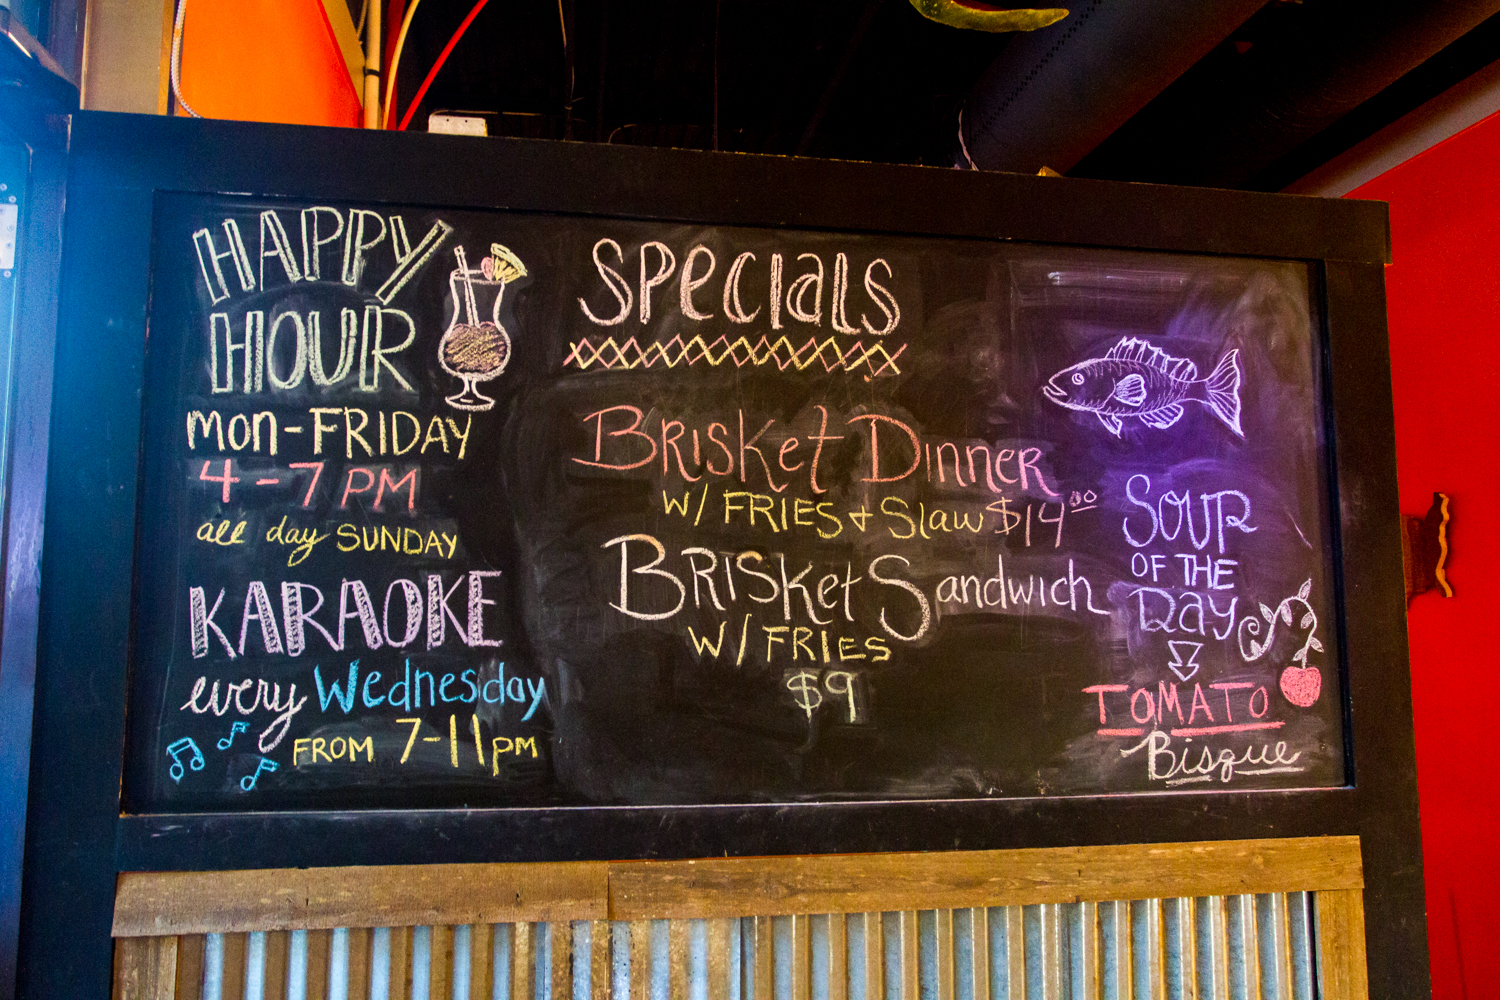 HAPPY
HOUR
MON-FRIDAY
4-7 PM
all day SUNDAY
KARAOKE
every Wednesday
FROM 7-11PM
SPeciALS
BRISKet DINNER
W/ FRIES + Slaw $14.00
BRISKet Sandwich
W/ FRIES
$9
SOUP
OF THE
Day
TOMATO
Bisque